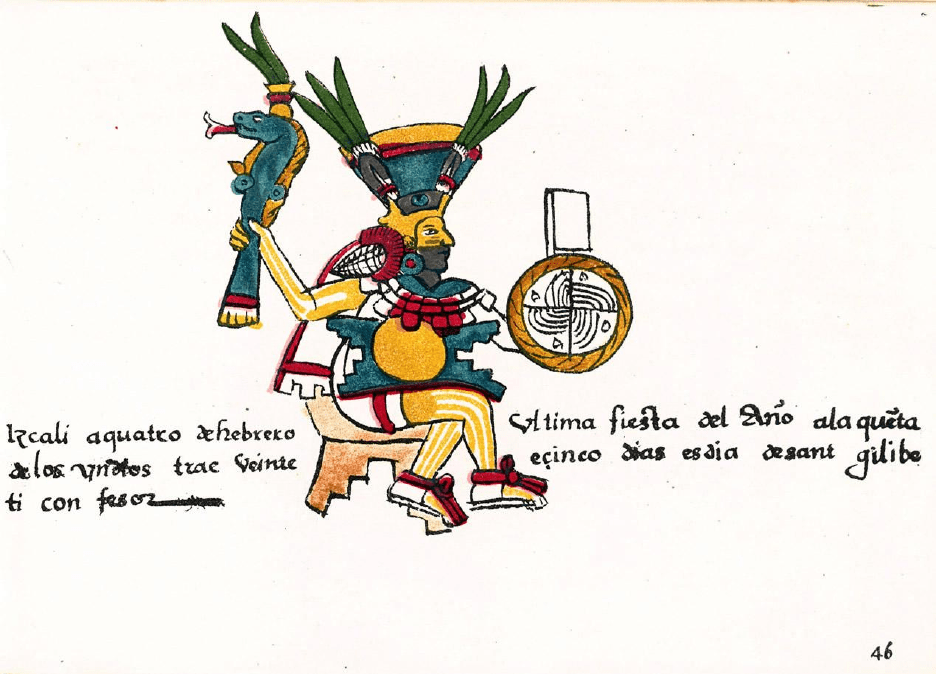 Izcali aquatro dehebrero
delos yndios trae veinte
ti con fesor
Vltima fiesta del Año ala quēta
eçinco dias es dia de sant gilibe
46